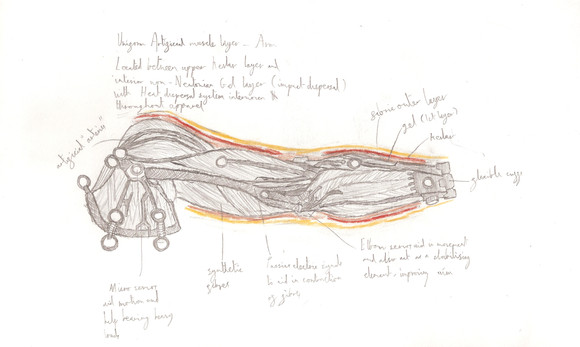 Uniform Artificial muscle layer - Arm
Located between upper Kevlar layer and
interior non-Newtonian Gel layer (impact dispersal)
with Heat dispersal system interwoven &
throughout apparel
artificial "arteries"
outer layer
gel (1st layer)
kevlar
flexible cuffs
Elbow sensors aid in movement
and also act as a stabilising
element - improving aim
electric
to aid in contraction
of fibres
synthetic
fibres
Micro sensors
aid motion and
help bearing heavy
loads